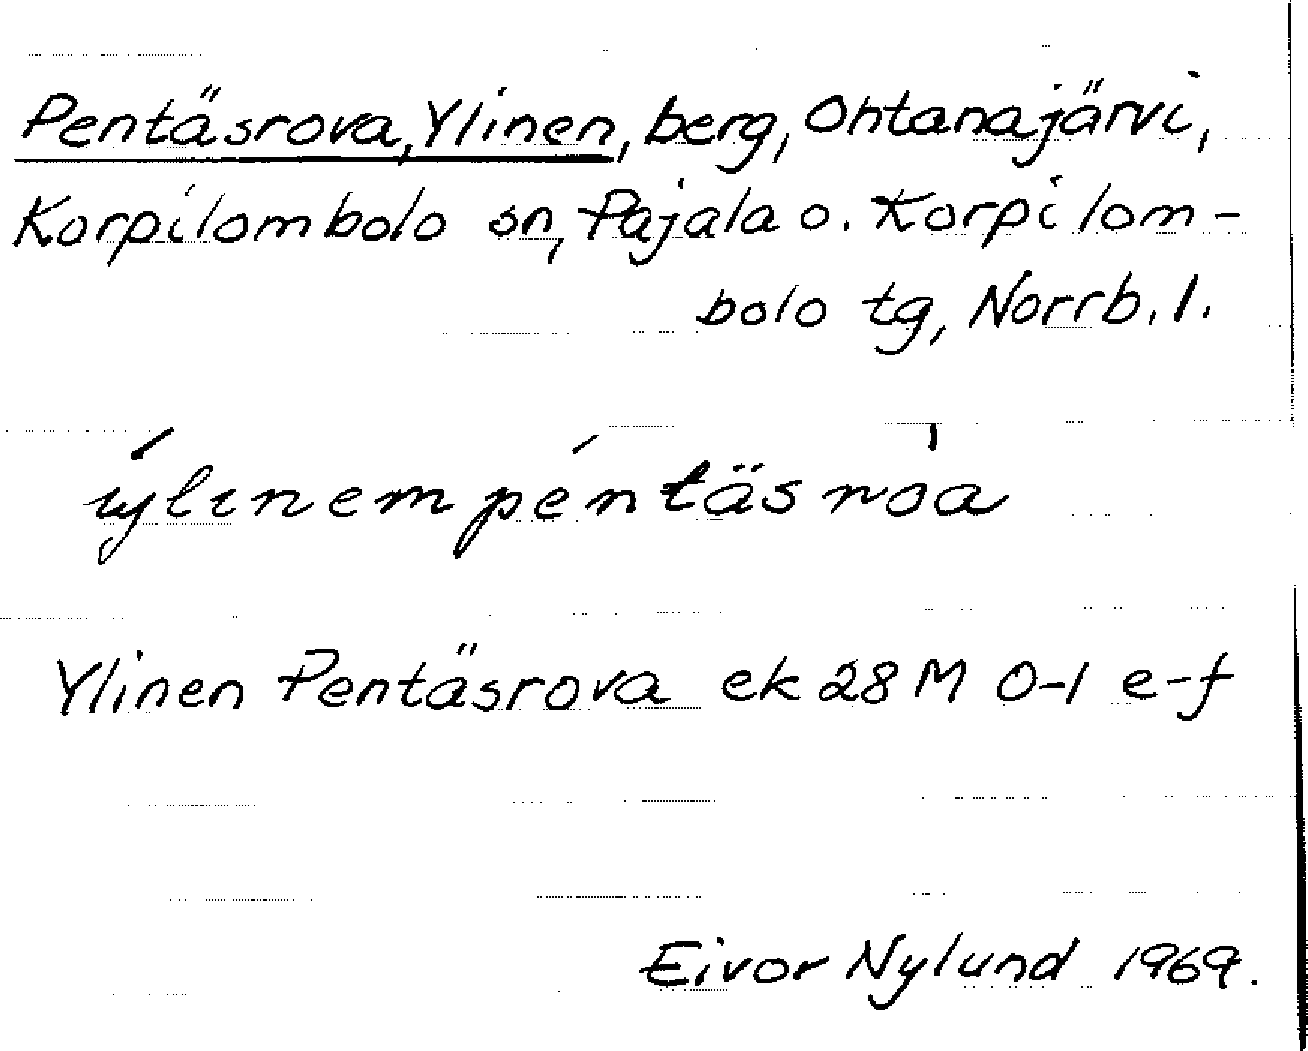 Pentäsrova, Ylinen, berg, Ohtanajärvi,
Korpilombolo sn, Pajala o. Korpilom-
bolo tg, Norrb. l.
ylinempentäsroa
Ylinen Pentäsrova ek 28 M 0-1 e-f
Eivor Nylund 1969.